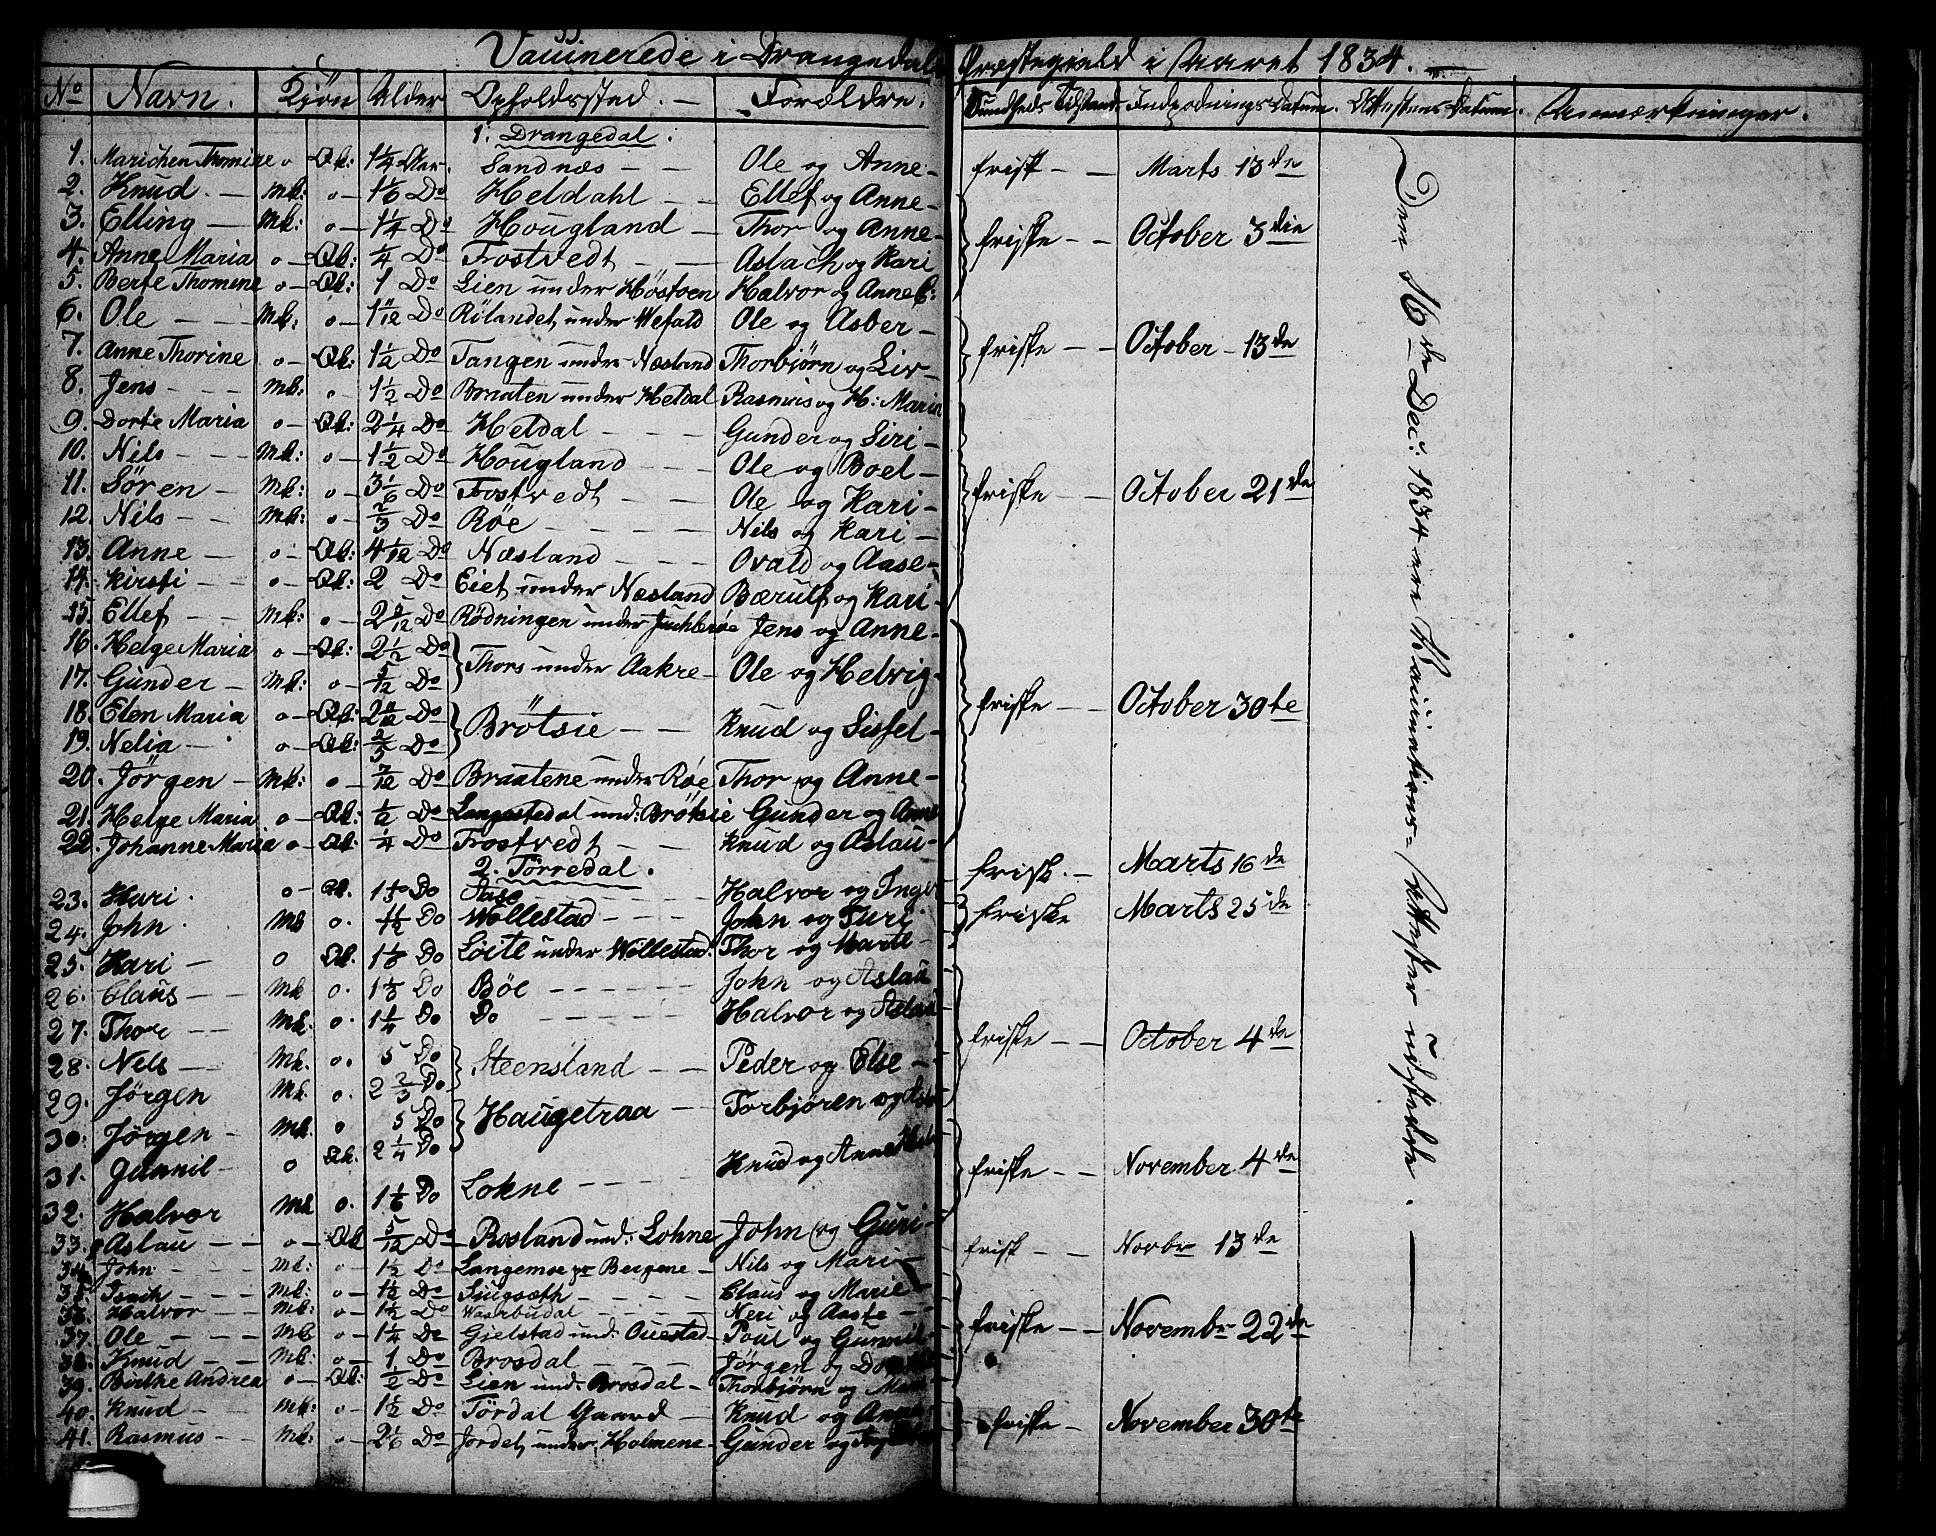 Vaccinerede i Drangedals Præstegield i Aaret 1834.
No Navn. Kjön Alder Opholdsstad. Forældre. Sundheds Tilstand Indpodnings Datum. Attestens Datum. Anmærkninger.
1. Drangedal.
1. Marichen Thomine o Qk: 1 1/4 Aar. Sandnæs Ole og Anne frisk Marts 13de
2. Knud Mk: o 1 1/6 Do Heldahl Ellef og Anne
3. Elling Mk: o 1 1/4 Do Hougland Thor og Anne friske October 3die
4. Anne Maria o Qk: 1/4 Do Frostvedt Aslach og Kari
5. Berte Thomine o Qk: 1 Do Lien under Höstoen Halvor og Anne
6. Ole Mk: o 1 11/12 Do Rölandet under Wefald Ole og Asber
7. Anne Thorine o Qk: 1 1/12 Do Tangen under Næsland Thorbjörn og Liv friske October 13de
8. Jens Mk: o 1 1/2 Do Braaten under Heldal Rasmus og H: Maria
9. Dorte Maria o Qk: 2 1/4 Do Heldal Gunder og Siri
10. Nils Mk: o 1 1/2 Do Hougland Ole og Boel
11. Sören Mk: o 3 1/6 Do Frostvedt Ole og Kari friske October 21de
12. Nils Mk: o 2/3 Do Röe Nils og Kari
13. Anne o Qk: 4 1/12 Do Næsland Ovald og Aase
14. Kirsti o Qk: 2 Do Eiet under Næsland Bærulf og Kari
15. Ellef Mk: o 2 5/12 Do Rödningen under Jens og Anne
16. Helge Maria o Qk: 2 1/2 Do Thors under Aakre Ole og Helvig
17. Gunder Mk: o 5/12 Do
18. Elen Maria o Qk: 2 11/12 Do Brötsie Knud og Sissel friske October 30te
19. Nelia o Qk: 2/5 Do
20. Jörgen Mk: o 7/12 Do Braatene under Röe Thor og Anne
21. Helge Maria o Qk: 1/2 Do Langestedal und: Brötsie Gunder og Anne
22. Johanne Maria o Qk: 1/4 Do Frostvedt Knud og Aslau
2. Törredal.
23. Kari o Qk. 1 Do Aase Halvor og Inger frisk. Marts 16de
24. John Mk o. 1 1/2 Do Wöllestad John og Turi friske Marts 25de
25. Kari o Qk. 1 1/6 Do Löite under Wöllestad Thor og Marte
26. Claus Mk o. 1 1/3 Do Böe John og Aslau
27. Thor Mk. o. 1 1/4 Do Do Halvor og Aslau
28. Nels Mk. o. 5 Do Steensland Peder og Else friske October 4de
29. Jörgen Mk. o. 2 2/3 Do
30. Jörgen Mk. o 5 Do Haugetraa Torbjören og
31. Gunnil o Qk. 2 1/4 Do
32. Halvor Mk o. 1 1/6 Do Lohne Knud og Anne friske November 4de
33. Aslau o Qk 5/12 Do Rosland und: Lohne John og Guri frisk Novbr 13de
34. John Mk: o 1 1/2 Do Langemoe pr Bergene Nils og Mari
35. Isach Mk: o 1 1/2 Do Claus og Marie
36. Halvor Mk: o 1 1/2 Do Waarbudal Neri og Aaste
37. Ole Mk o 1 1/4 Do Gjelstad und: Ouestad Poul og Gunnil friske Novembr 22de
38. Knud Mk: o 1 Do Brosdal Jörgen og
39. Birthe Andrea o Qk: 1/2 Do Lien und: Brosdal Thorbjörn og
40. Knud Mk: o 1 1/2 Do Tördal Gaard Knud og Anne
41. Rasmus Mk: o 2 1/6 Do Jordet under Holmene Gunder og friske November 30te
Den 16de Dec: 1834 ere Vaccinations-Attester udstedte.